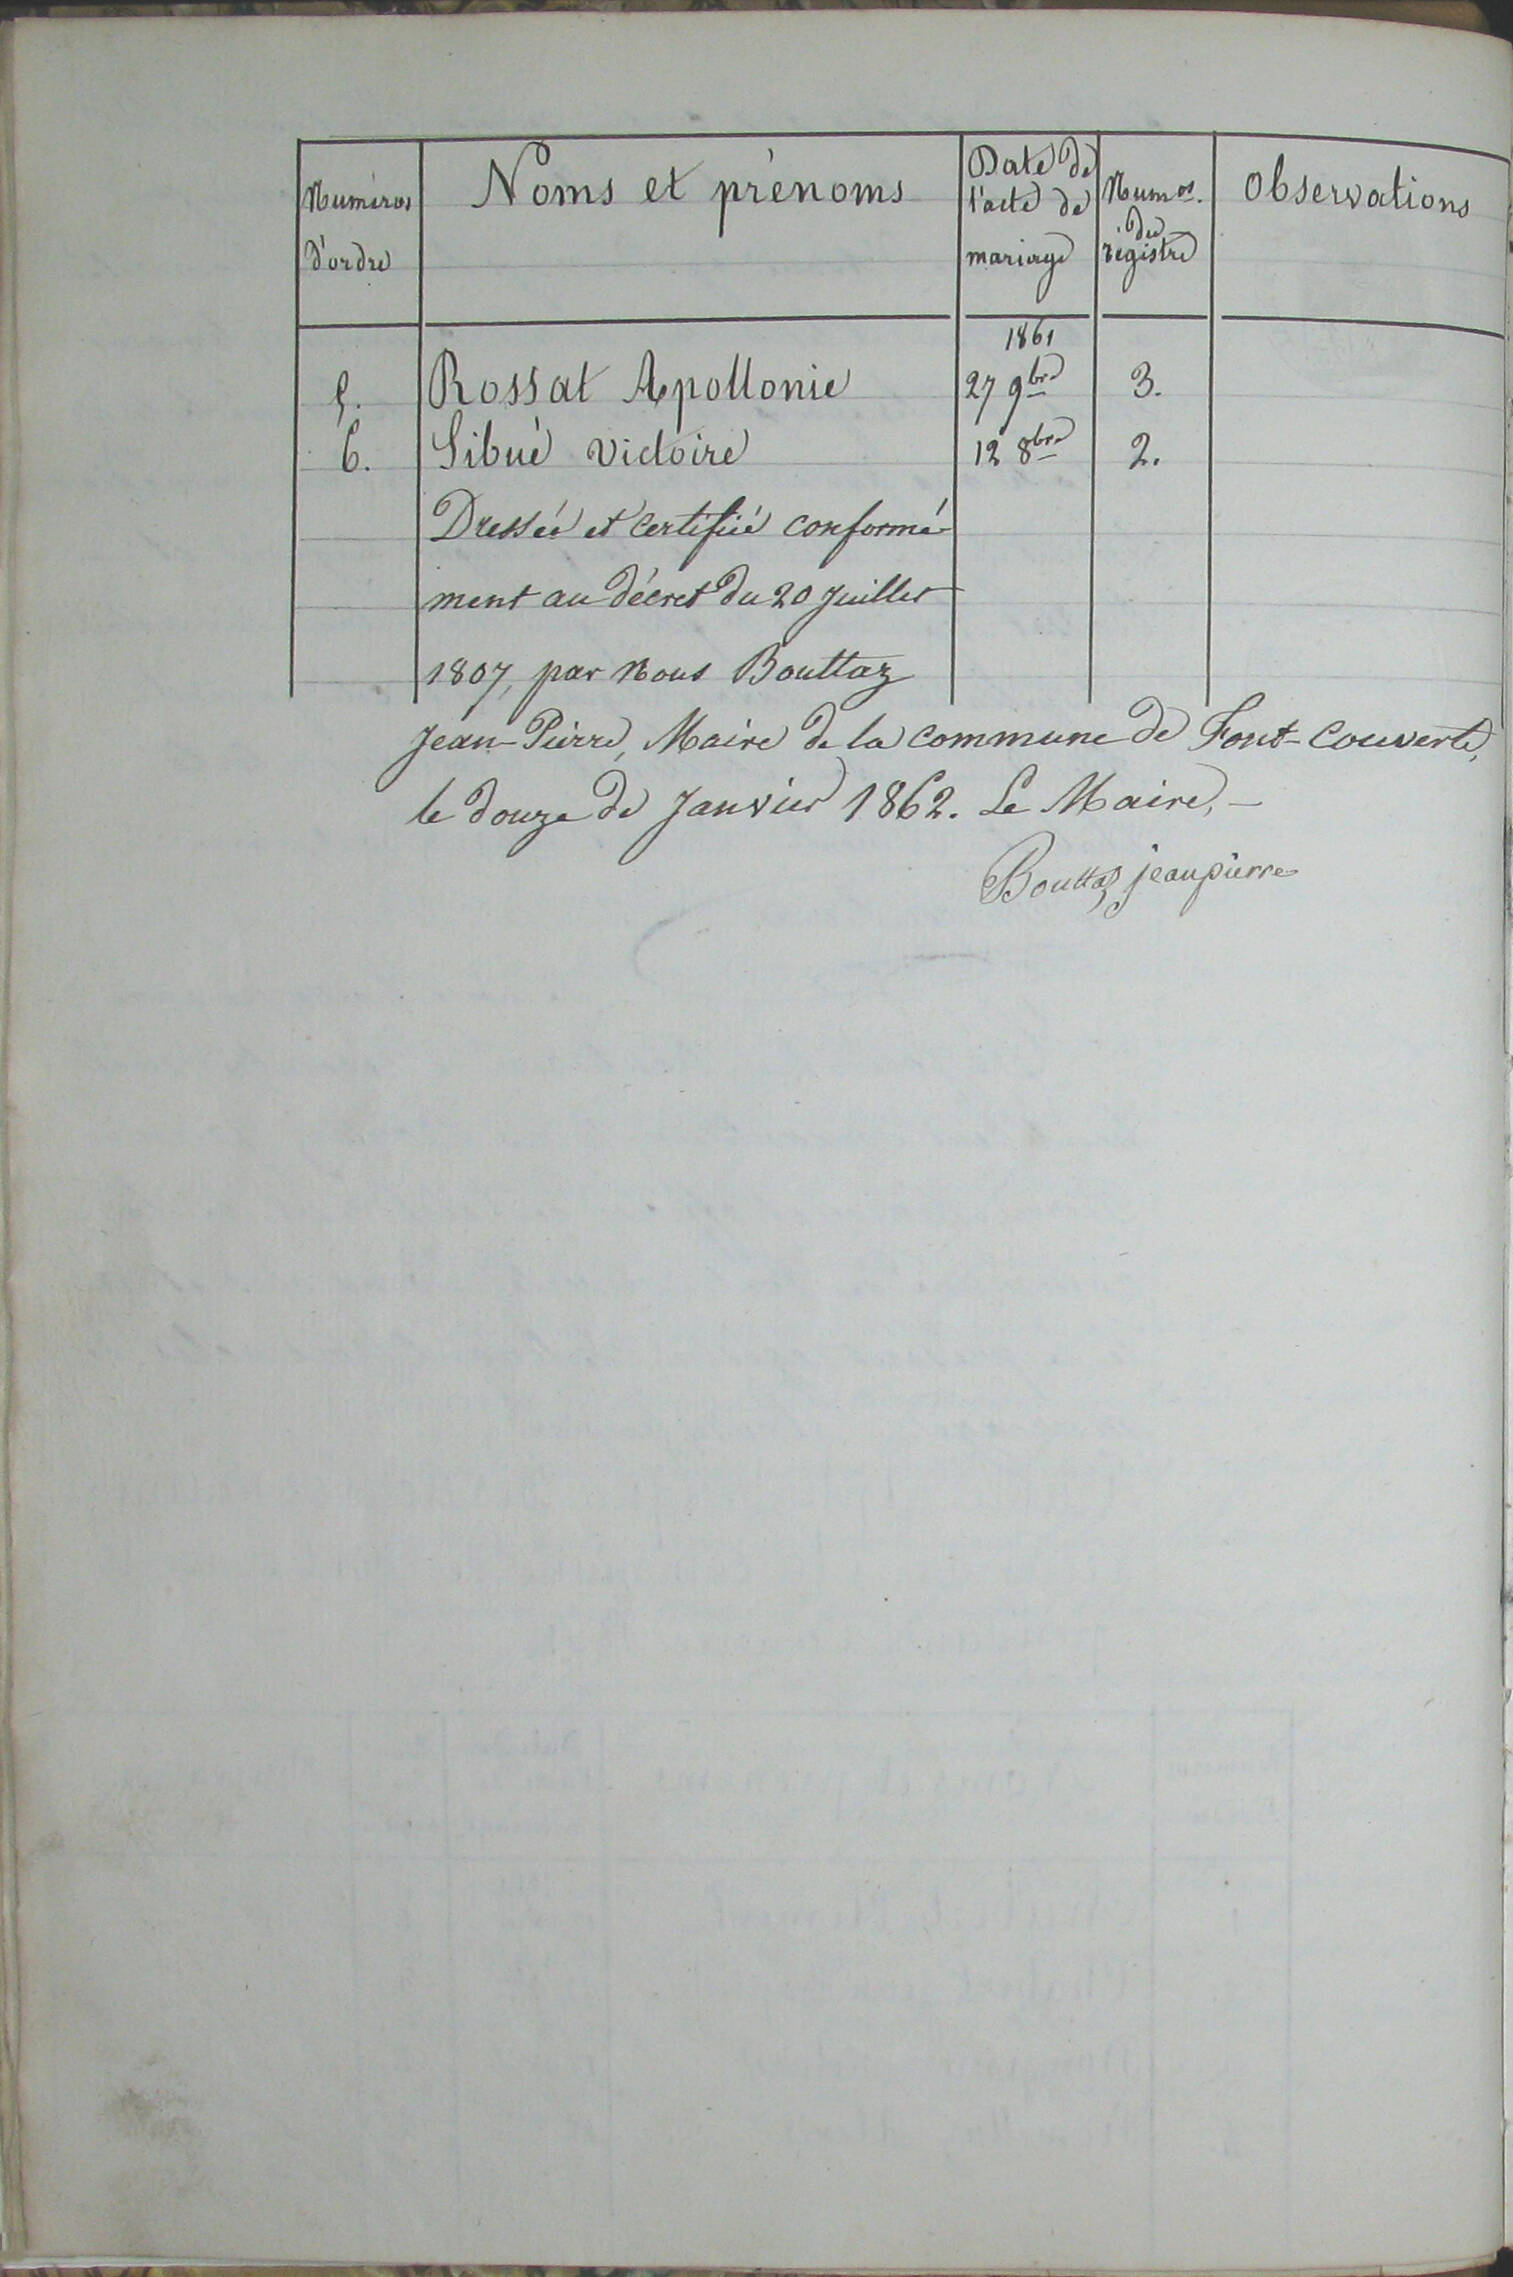 Numéros d'ordre | Noms et prénoms | Date de l'acte de mariage | Numos. du régistre | Observations
1861
5. | Rossat Apollonie | 27 9bre | 3.
6. | Sibué Victoire | 12 8bre | 2.
Dressée et certifié conformé
ment au décret du 20 Juillet
1807, par Nous Bouttaz
Jean-Pierre, Maire de la commune de Font-Couverte,
le douze de Janvier 1862. Le Maire, –
Bouttaz jeanpierre